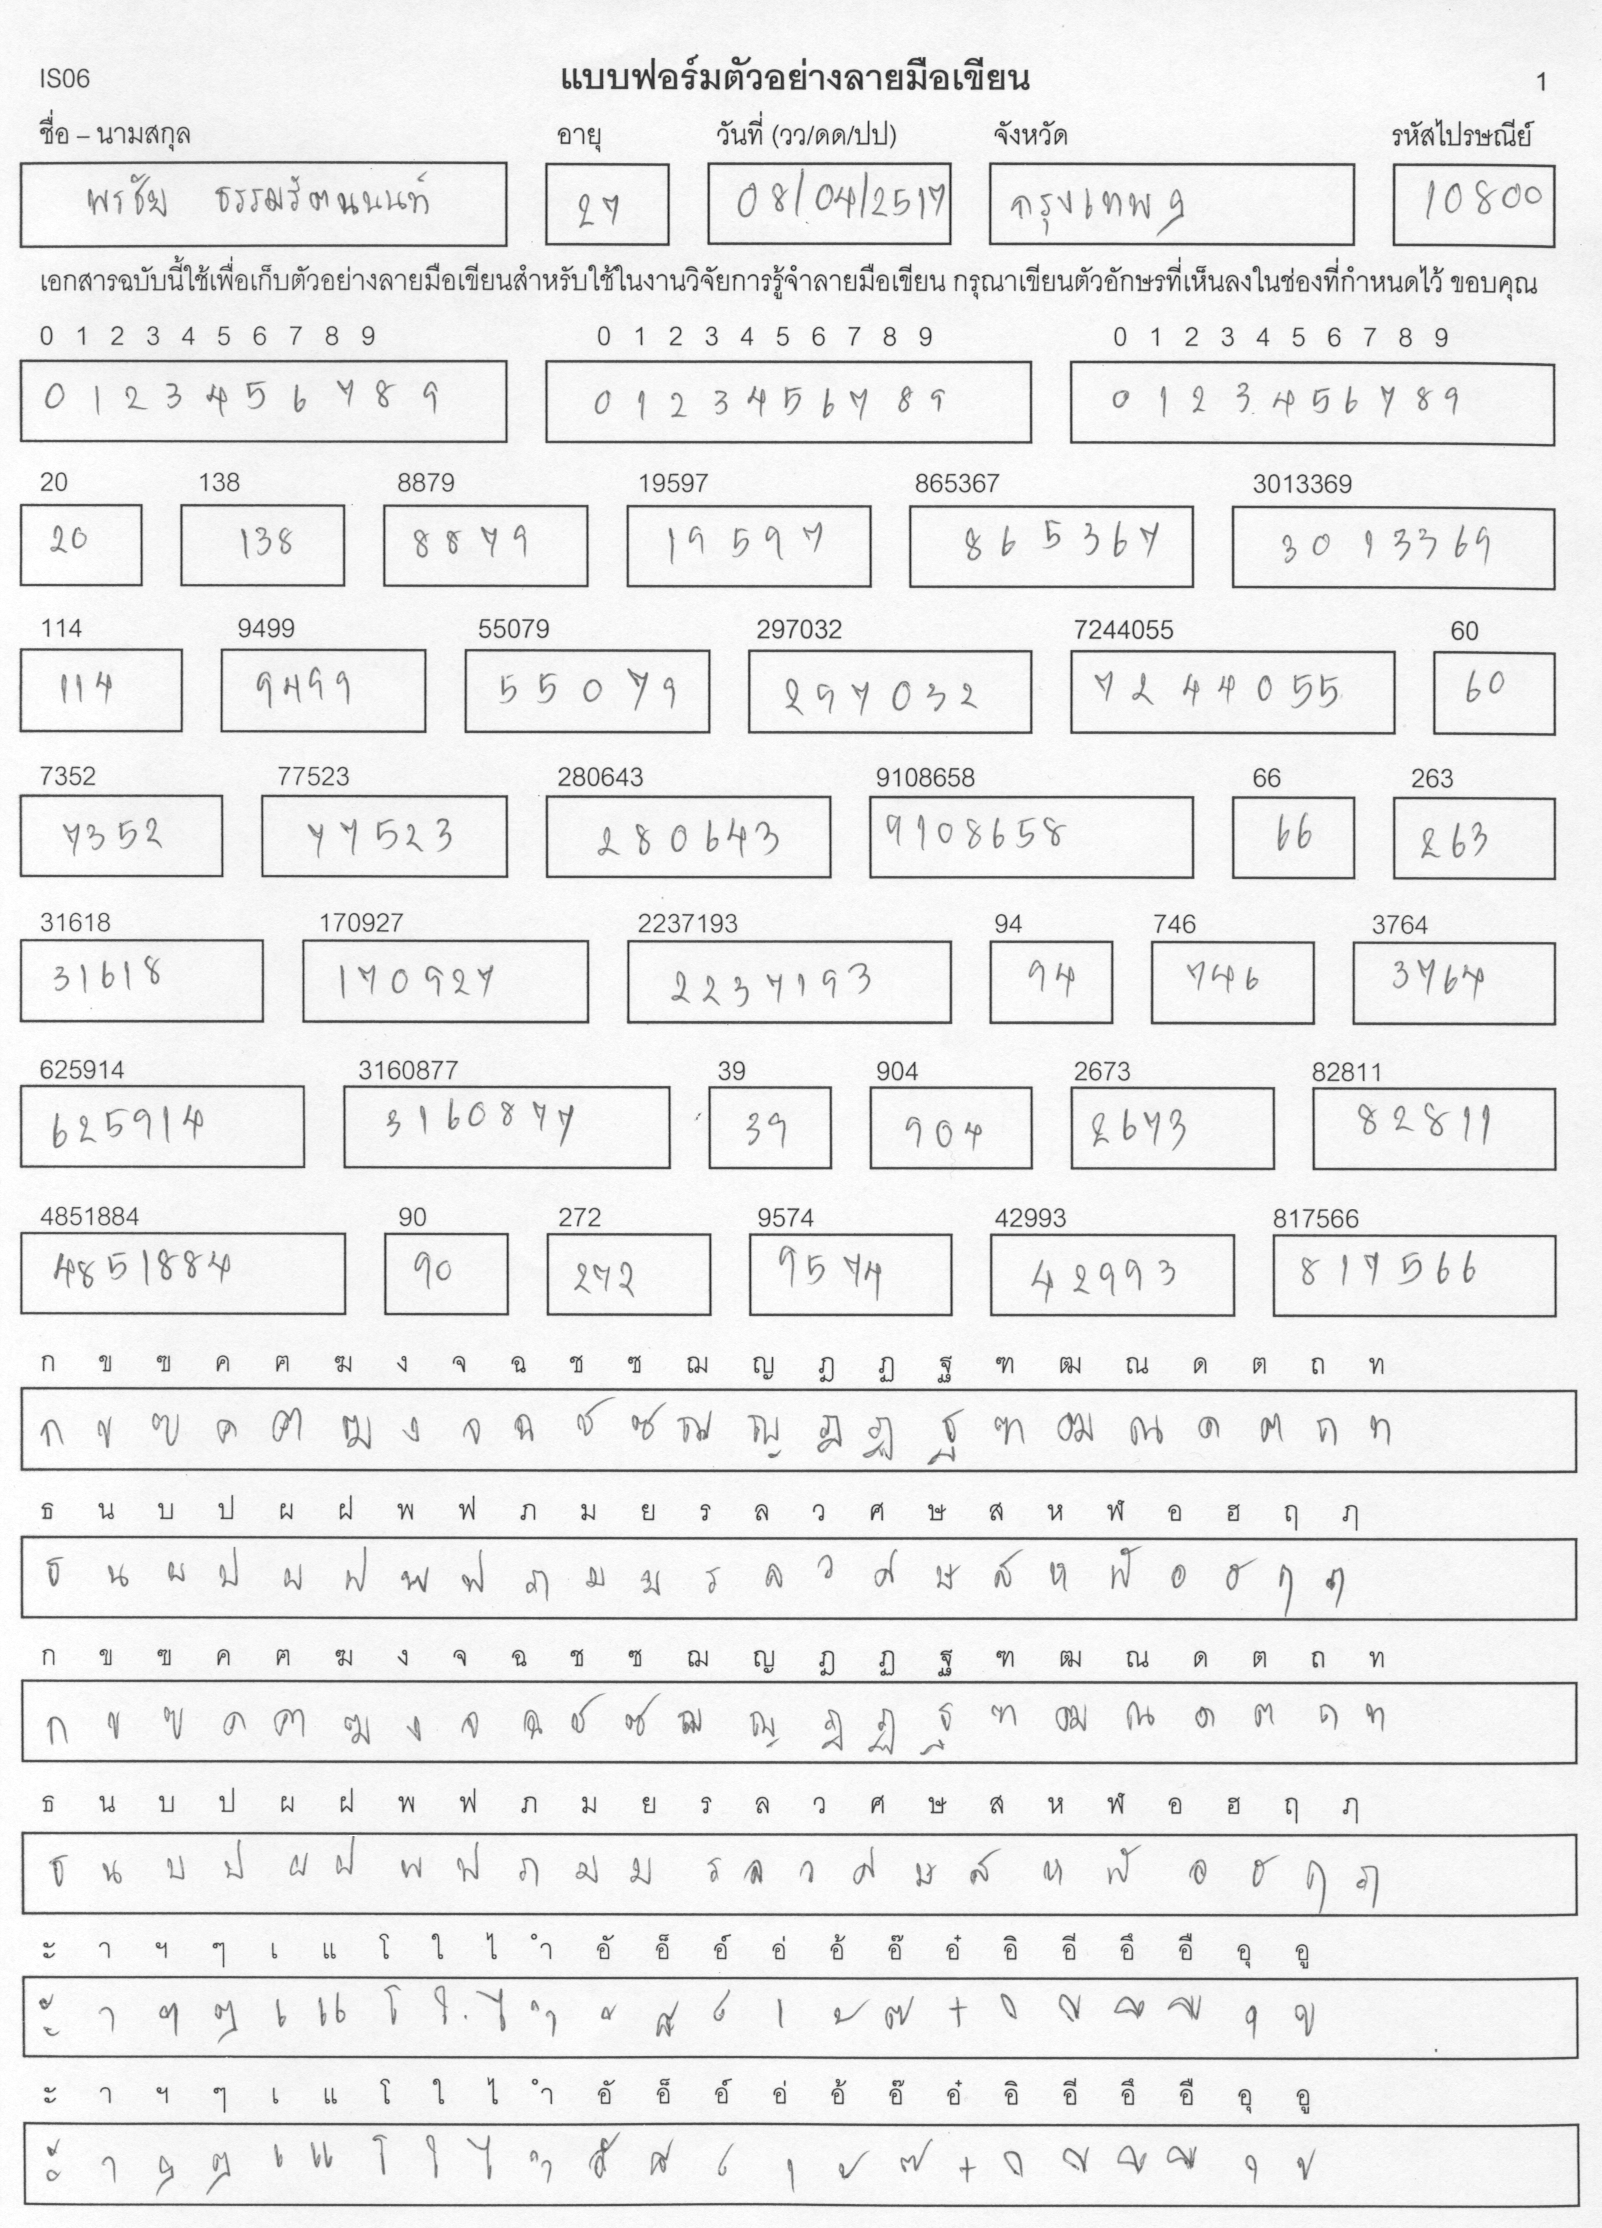 IS06 แบบฟอร์มตัวอย่างลายมือเขียน 1
ชื่อ – นามสกุล อายุ วันที่ (วว/ดด/ปป) จังหวัด รหัสไปรษณีย์
พรชัย ธรรมรัตนนนท์ 27 08/04/2517 กรุงเทพฯ 10800
เอกสารฉบับนี้ใช้เพื่อเก็บตัวอย่างลายมือเขียนสำหรับใช้ในงานวิจัยการรู้จำลายมือเขียน กรุณาเขียนตัวอักษรที่เห็นลงในช่องที่กำหนดไว้ ขอบคุณ
0 1 2 3 4 5 6 7 8 9 0 1 2 3 4 5 6 7 8 9 0 1 2 3 4 5 6 7 8 9
0 1 2 3 4 5 6 7 8 9 0 1 2 3 4 5 6 7 8 9 0 1 2 3 4 5 6 7 8 9
20 138 8879 19597 865367 3013369
20 138 8879 19597 865367 3013369
114 9499 55079 297032 7244055 60
114 9499 55079 297032 7244055 60
7352 77523 280643 9108658 66 263
7352 77523 280643 9108658 66 263
31618 170927 2237193 94 746 3764
31618 170927 2237193 94 746 3764
625914 3160877 39 904 2673 82811
625914 3160877 39 904 2673 82811
4851884 90 272 9574 42993 817566
4851884 90 272 9574 42993 817566
ก ข ฃ ค ฅ ฆ ง จ ฉ ช ซ ฌ ญ ฎ ฏ ฐ ฑ ฒ ณ ด ต ถ ท
ก ข ฃ ค ฅ ฆ ง จ ฉ ช ซ ฌ ญ ฎ ฏ ฐ ฑ ฒ ณ ด ต ถ ท
ธ น บ ป ผ ฝ พ ฟ ภ ม ย ร ล ว ศ ษ ส ห ฬ อ ฮ ฤ ฦ
ธ น ผ ป ผ ฝ พ ฟ ภ ม ย ร ล ว ศ ษ ส ห ฬ อ ฮ ฤ ฦ
ก ข ฃ ค ฅ ฆ ง จ ฉ ช ซ ฌ ญ ฎ ฏ ฐ ฑ ฒ ณ ด ต ถ ท
ก ข ฃ ค ฅ ฆ ง จ ฉ ช ซ ฌ ญ ฎ ฏ ฐ ฑ ฒ ณ ด ต ถ ท
ธ น บ ป ผ ฝ พ ฟ ภ ม ย ร ล ว ศ ษ ส ห ฬ อ ฮ ฤ ฦ
ธ น บ ป ผ ฝ พ ฟ ภ ม ย ร ล ว ศ ษ ส ห ฬ อ ฮ ฤ ฦ
ะ า ฯ ๆ เ แ โ ใ ไ ำ อั อ็ อ์ อ่ อ้ อ๊ อ๋ อิ อี อึ อื อุ อู
ะ า ฯ ๆ เ แ โ ใ ไ ำ ั ็ ์ ่ ้ ๊ ๋ ิ ี ึ ื ุ ู
ะ า ฯ ๆ เ แ โ ใ ไ ำ อั อ็ อ์ อ่ อ้ อ๊ อ๋ อิ อี อึ อื อุ อู
ะ า ฯ ๆ เ แ โ ใ ไ ำ ั ็ ์ ่ ้ ๊ ๋ ิ ี ึ ื ุ ู